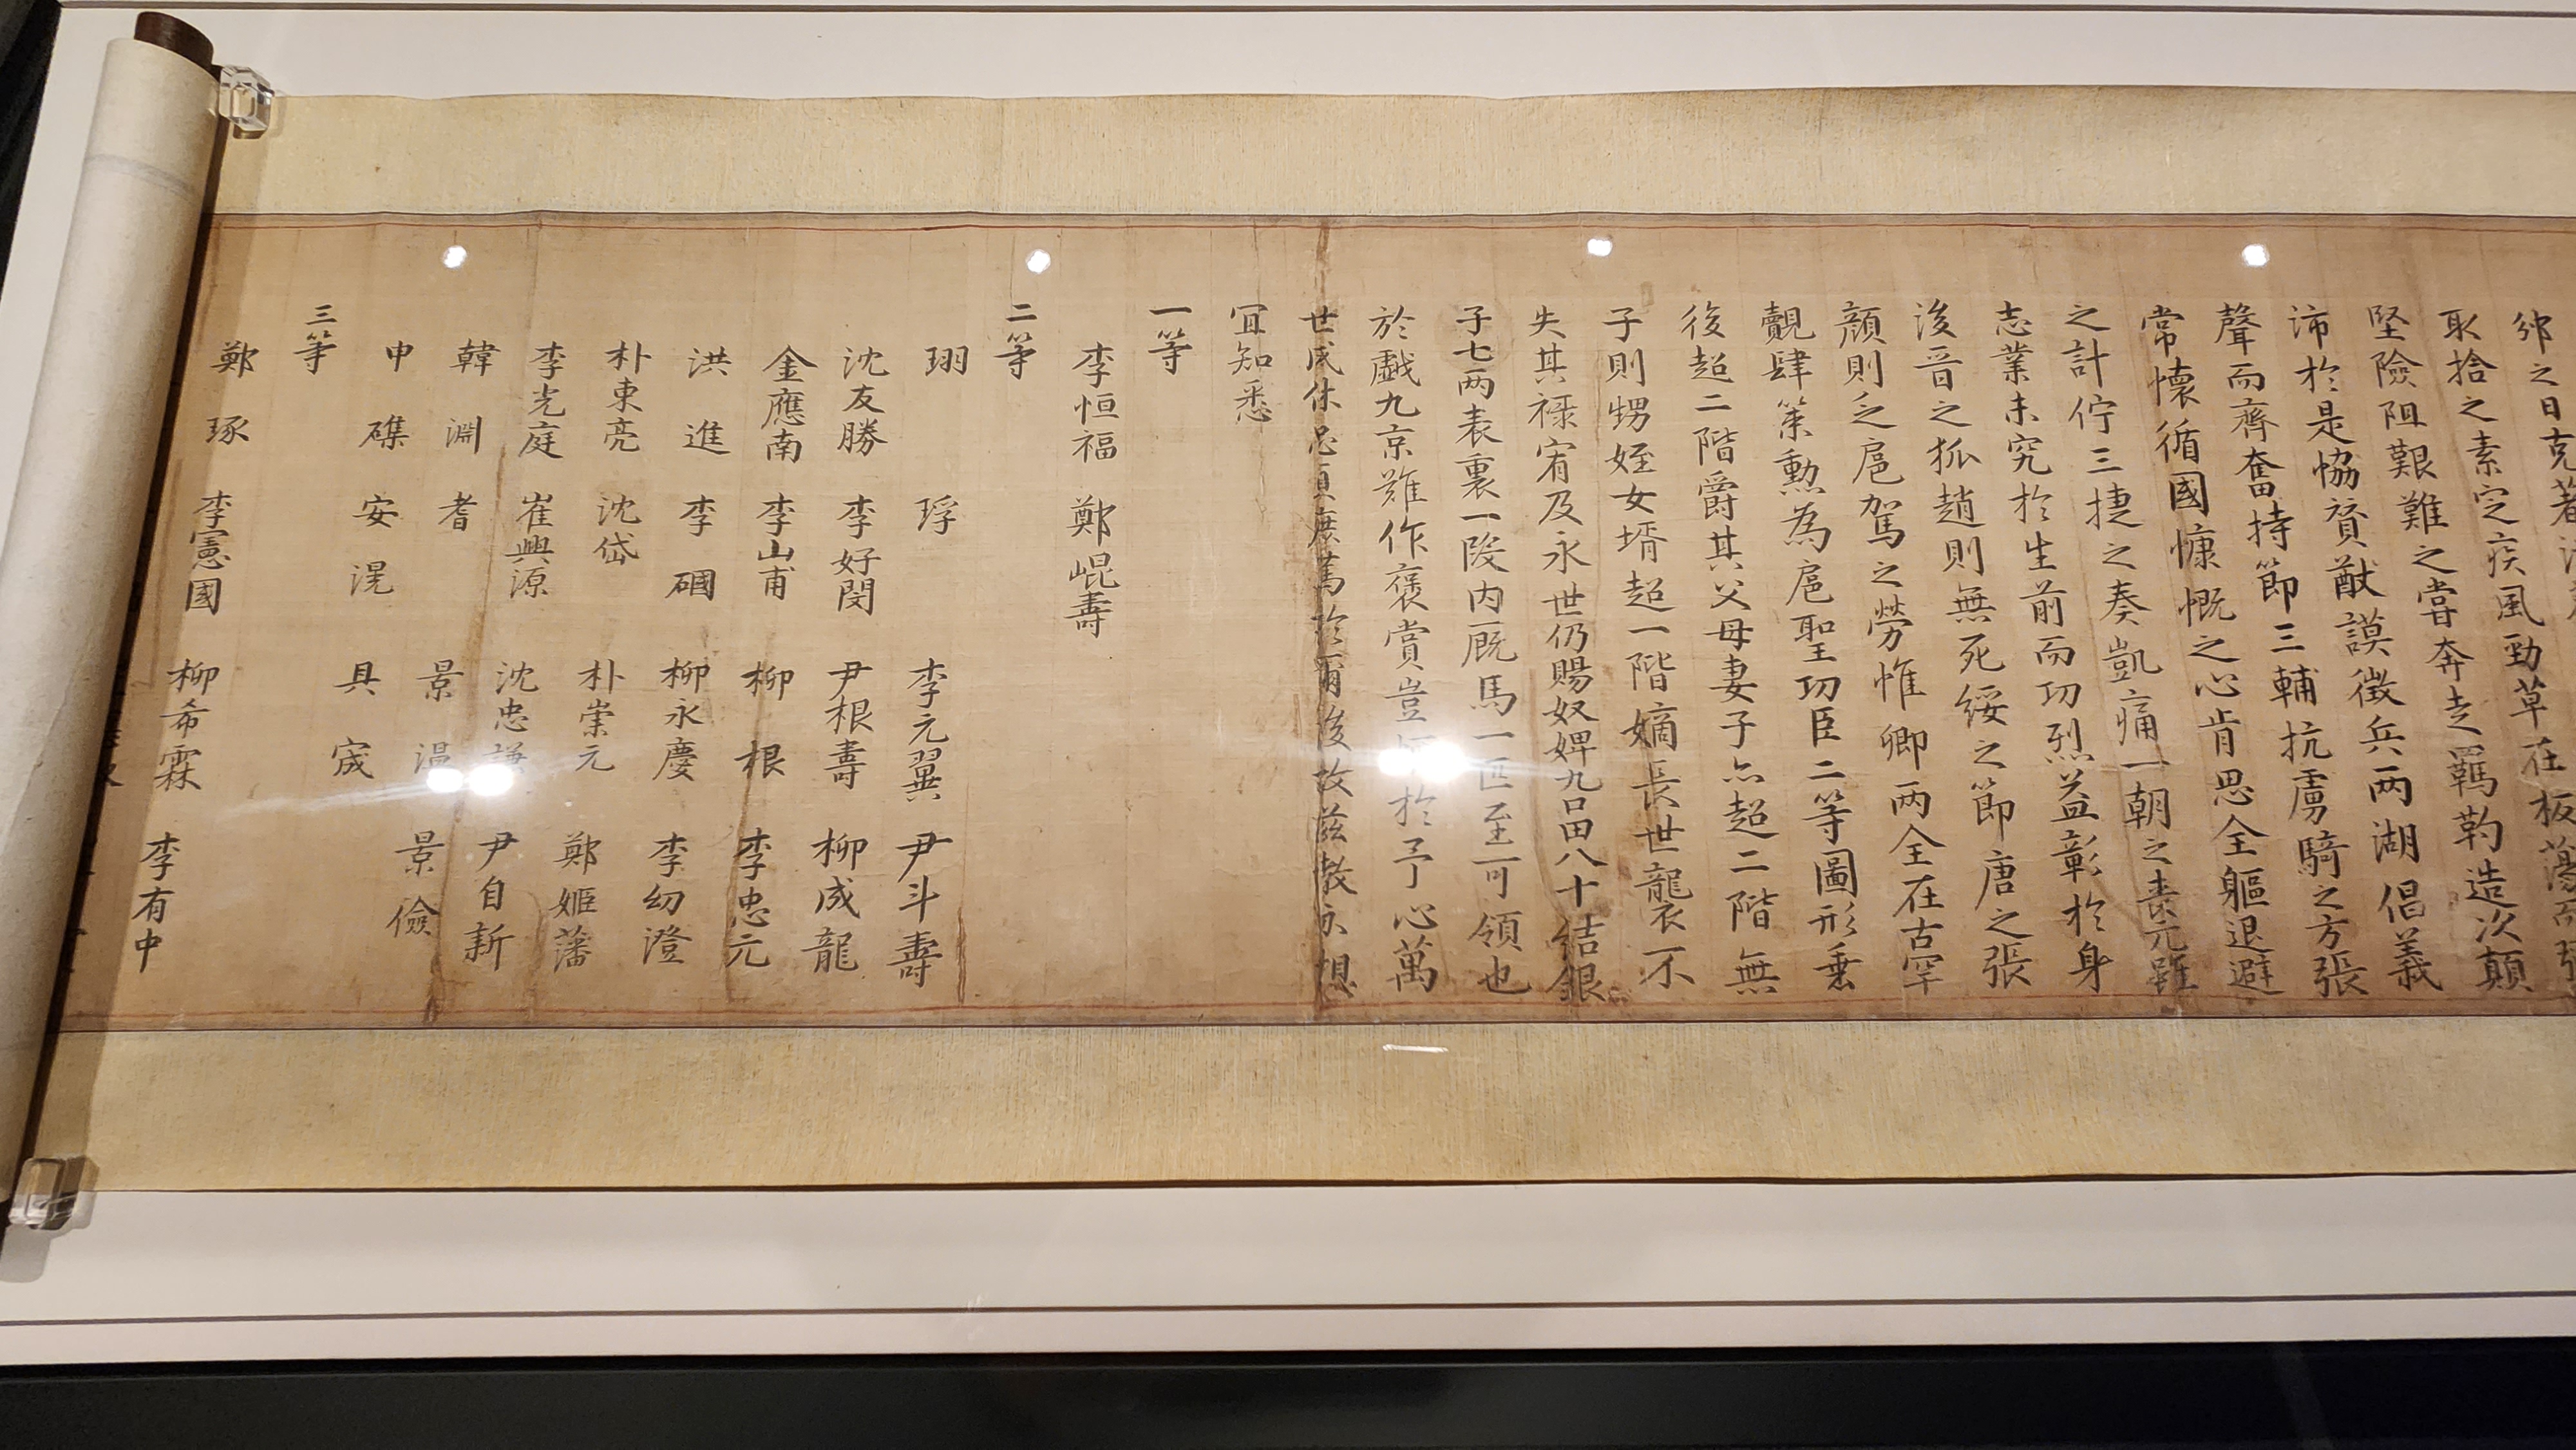 之日克著
取捨之素定疾風勁草在板蕩而
堅險阻艱難之嘗奔走羈靮造次顛
沛於是恊贊猷謨徵兵两湖倡義
聲而齊奮持節三輔抗虜騎之方張
常懷循國慷慨之心肯思全軀退避
之計佇三捷之奏凱痛一朝之喪元雖
志業未究於生前而功烈益彰於身
後晉之狐趙則無死綏之節唐之張
顔則乏扈駕之勞惟卿两全在古罕
覿肆策勳為扈聖功臣二等圖形垂
後超二階爵其父母妻子亦超二階無
子則甥姪女壻超一階嫡長世襲不
失其祿宥及永世仍賜奴婢九口田八十結銀
子七两表裏一段内廐馬一匹至可領也
於戱九京難作褒賞豈於予心萬
世咸休忠貞庶篤於爾後故兹教示想
冝知悉
一等
李恒福 鄭崐壽
二等
珝 琈 李元翼 尹斗壽
沈友勝 李好閔 尹根壽 柳成龍
金應南 李山甫 柳根 李忠元
洪進 李𥕏 柳永慶 李幼澄
朴東亮 沈岱 朴崇元 鄭姬藩
李光庭 崔興源 沈忠謙 尹自新
韓淵 耆 景温 景儉
申磼 安滉 具宬
三等
鄭琢 李憲國 柳希霖 李有中